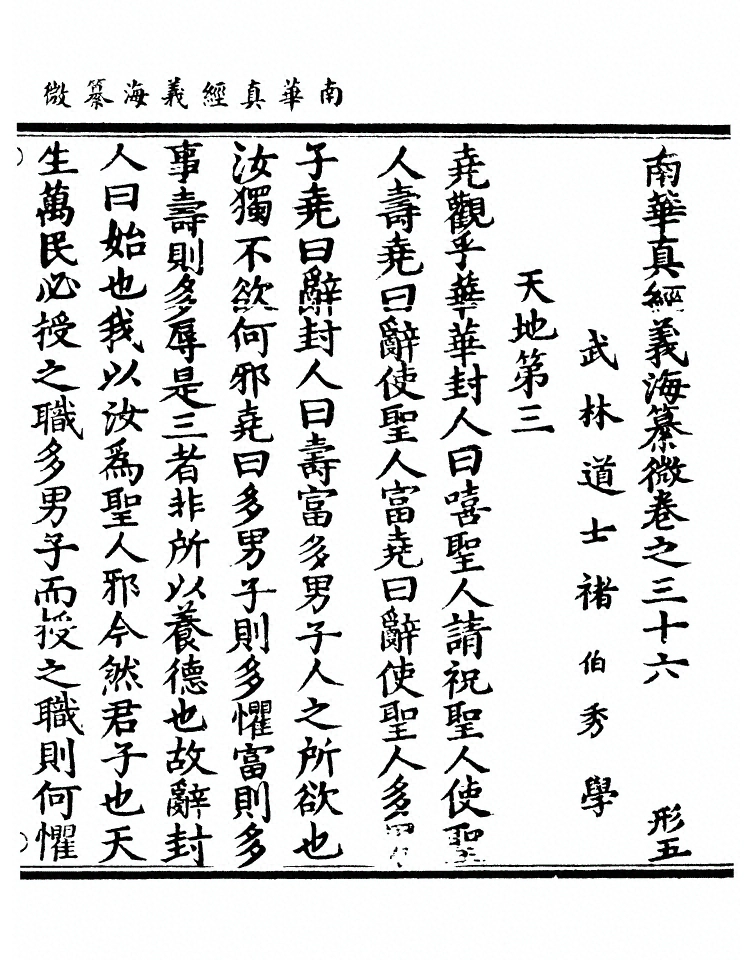 南華真經義海纂微
南華真經義海纂微卷之三十六 形五
武林道士褚伯秀學
天地第三
堯觀乎華華封人曰嘻聖人請祝聖人使聖
人壽堯曰辭使聖人富堯曰辭使聖人多男
子堯曰辭封人曰壽富多男子人之所欲也
汝獨不欲何邪堯曰多男子則多懼富則多
事壽則多辱是三者非所以養德也故辭封
人曰始也我以汝爲聖人邪今然君子也天
生萬民必授之職多男子而授之職則何懼